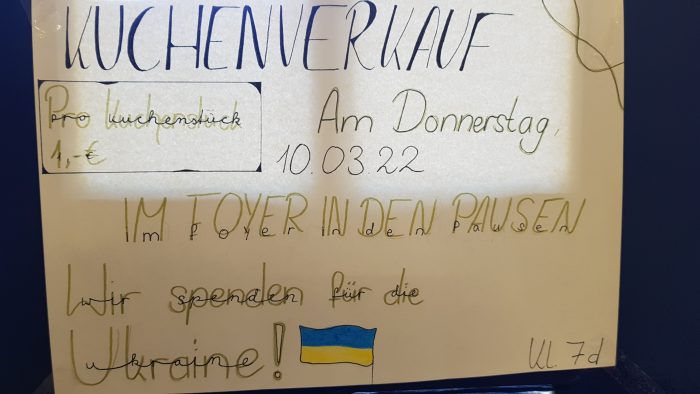 KUCHENVERKAUF
Pro Kuchenstück
1,-€
Am Donnerstag,
10.03.22
IM FOYER IN DEN PAUSEN
Wir spenden für die
Ukraine!
Kl 7d